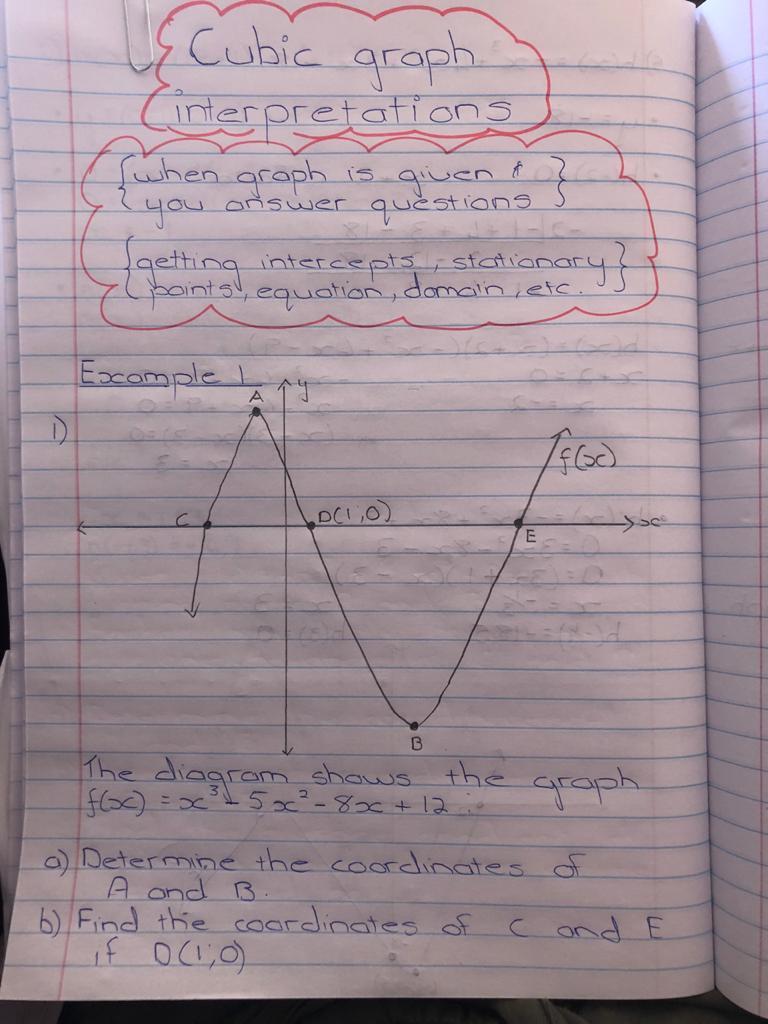 Cubic graph
interpretations
{when graph is given & }
{ you answer questions }
{getting intercepts, stationary}
{ points, equation, domain, etc. }
Example 1
1)
A
y
f(x)
C
D(1;0)
x
E
B
The diagram shows the graph
f(x) = x³ - 5x² - 8x + 12.
a) Determine the coordinates of
A and B.
b) Find the coordinates of C and E
if D(1;0)